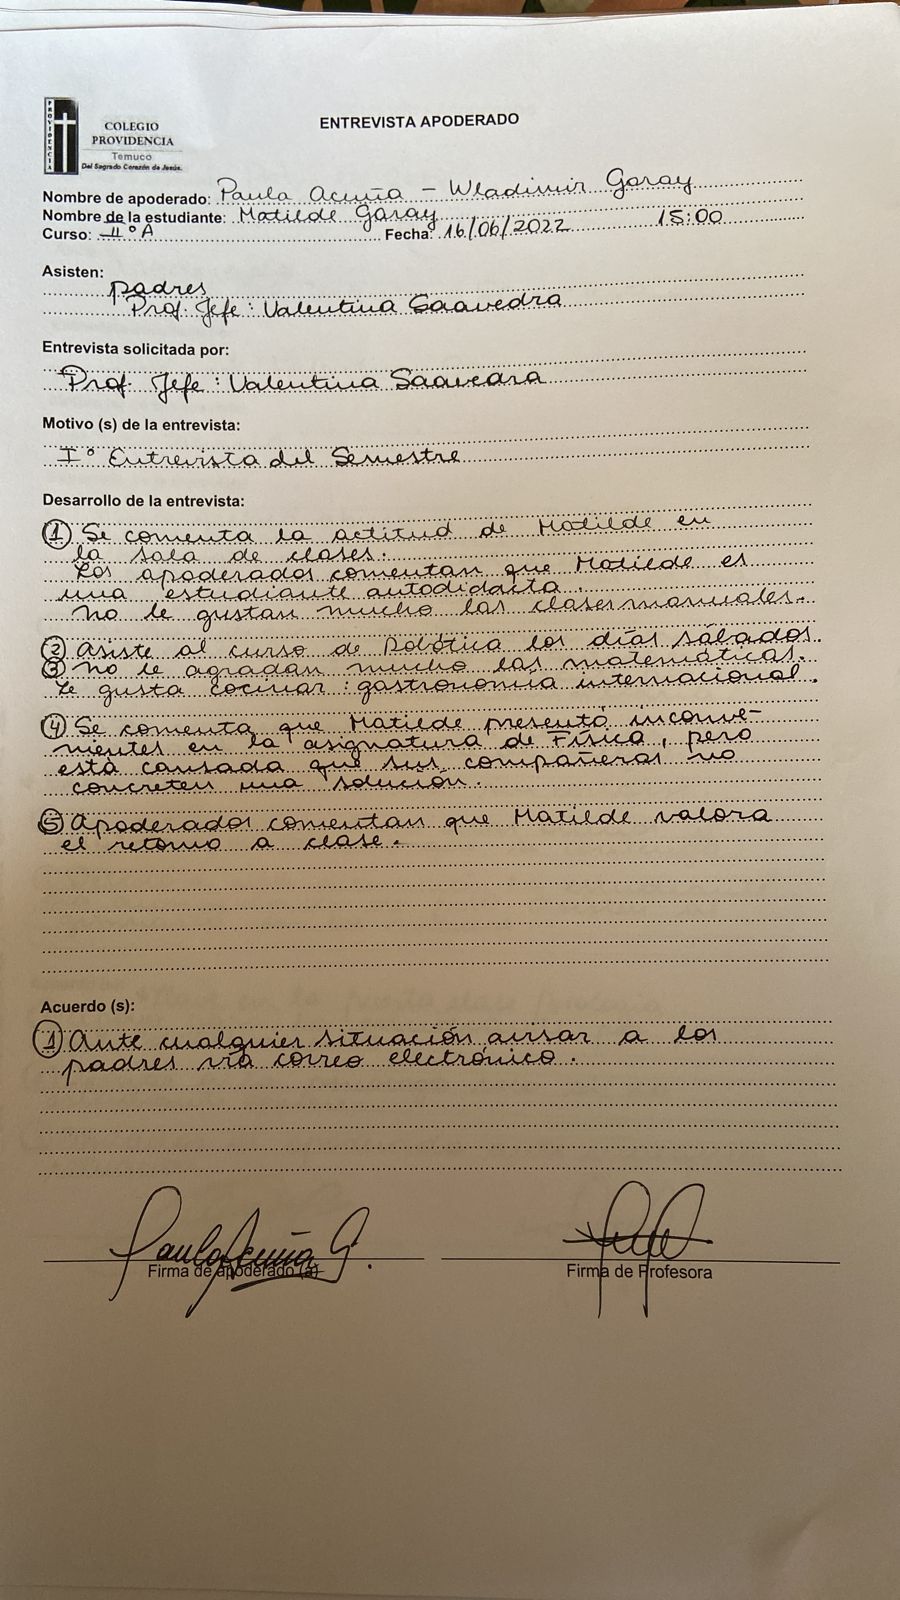 PROVIDENCIA
COLEGIO
PROVIDENCIA
Temuco
Del Sagrado Corazón de Jesús.
ENTREVISTA APODERADO
Nombre de apoderado: Paula Acuña - Wladimir Garay
Nombre de la estudiante: Matilde Garay
Curso: II°A Fecha: 16/06/2022 15:00
Asisten:
padres
Prof. Jefe: Valentina Saavedra
Entrevista solicitada por:
Prof. Jefe: Valentina Saavedra
Motivo (s) de la entrevista:
I° Entrevista del Semestre
Desarrollo de la entrevista:
① Se comenta la actitud de Matilde en
la sala de clases.
Los apoderados comentan que Matilde es
una estudiante autodidacta.
No le gustan mucho las clases manuales.
② Asiste al curso de Robótica los días sábados.
③ No le agradan mucho las matemáticas.
Le gusta cocinar: gastronomía internacional.
④ Se comenta que Matilde presentó inconve-
nientes en la asignatura de Física, pero
está cansada que sus compañeras no
concreten una solución.
⑤ Apoderados comentan que Matilde valora
el retorno a clase.
Acuerdo (s):
① Ante cualquier situación avisar a los
padres vía correo electrónico.
Paula Acuña G.
Firma de apoderado (a)
Firma de Profesora